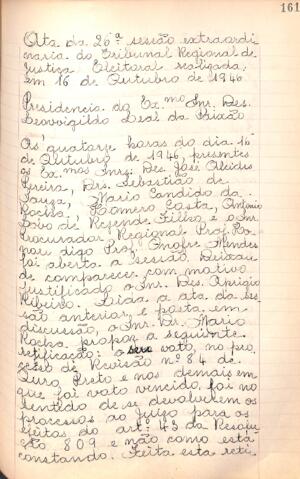 161
Ata da 26ª sessão extraordi
naria do Tribunal Regional de
Justiça Eleitoral realizada
em 16 de Outubro de 1946
Presidencia do Exmo Snr. Des.
Leovigildo Leal da Paixão
Ás quatorze horas do dia 16
de Outubro de 1946, presentes
os Exmos Snrs. Des. José Alcides
Pereira, Drs. Sebastião de
Souza, Mario Candido da
Rocha, Romero Costa, Antonio
Lobo de Rezende Filho e o Snr.
Procurador Regional Prof. Ho
digo Prof. Onofre Mendes
foi aberta a sessão. Deixou
de comparecer com motivo
justificado o Snr. Des. Aprigio
Ribeiro. Lida a ata da ses
são anterior, e posta em
discussão, o Snr. Dr. Mario
Rocha propoz a seguinte
retificação: o seu voto, no pro
cesso de Revisão nº 84 de
Ouro Preto e nos demais em
que foi voto vencido, foi no
sentido de se devolverem os
processos ao Juizo para os
efeitos do artº 43 da Resolu
ção 809 e não como está
constando. Feita esta reti